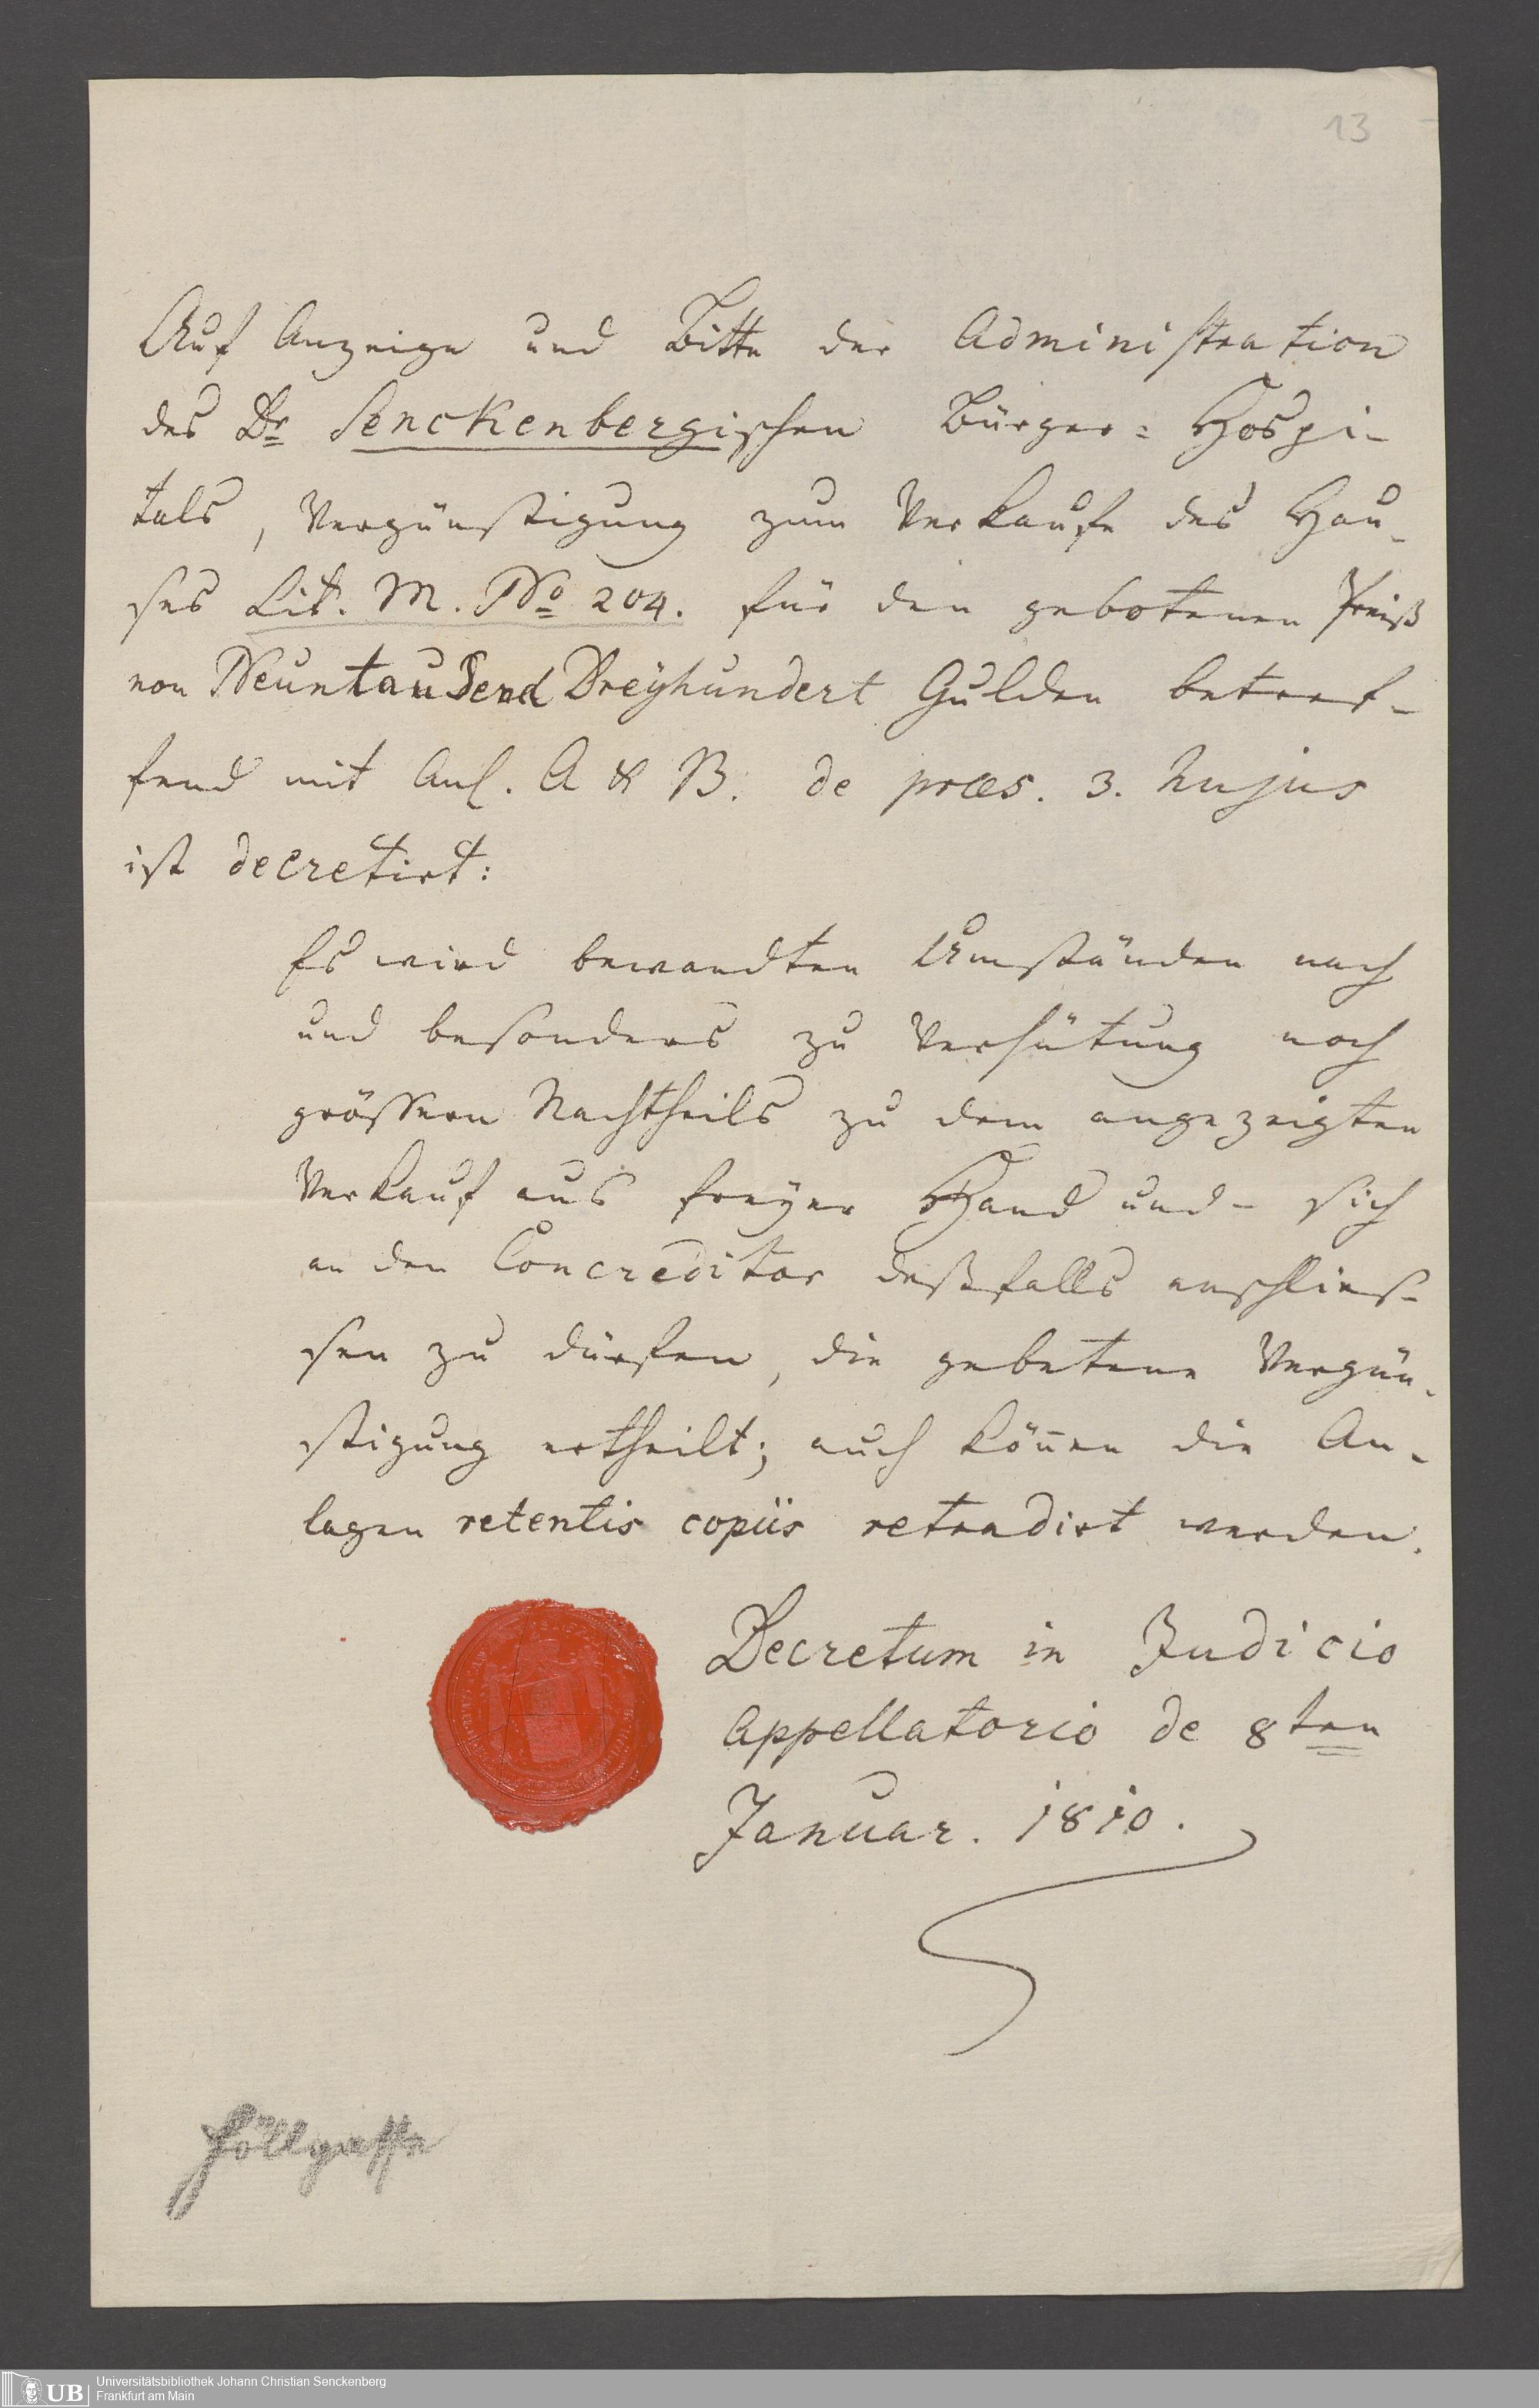 13
Auf Anzeige und Bitte der Administration
des Dr Senckenbergischen Bürger= Hospi-
tals, Vergünstigung zum Verkaufe des Hau-
ses Lit. M. No 204. für den gebotenen Preiß
von Neuntausend Dreyhundert Gulden betref-
fend mit Anl. A & B. de præs. 3. hujus
ist decretirt:
Es wird bewandten Umständen nach
und besonders zu Verhütung noch
grössern Nachtheils zu dem angezeigten
Verkauf aus freyer Hand und - sich
an den Concreditor deßfalls anschlies-
sen zu dürfen, die gebetene Vergün-
stigung ertheilt; auch kön̅en die An-
lagen retentis copiis retradirt werden.
Decretum in Judicio
Appellatorio de 8ten
Januar. 1810.
Höllgasse
UB Universitätsbibliothek Johann Christian Senckenberg
Frankfurt am Main